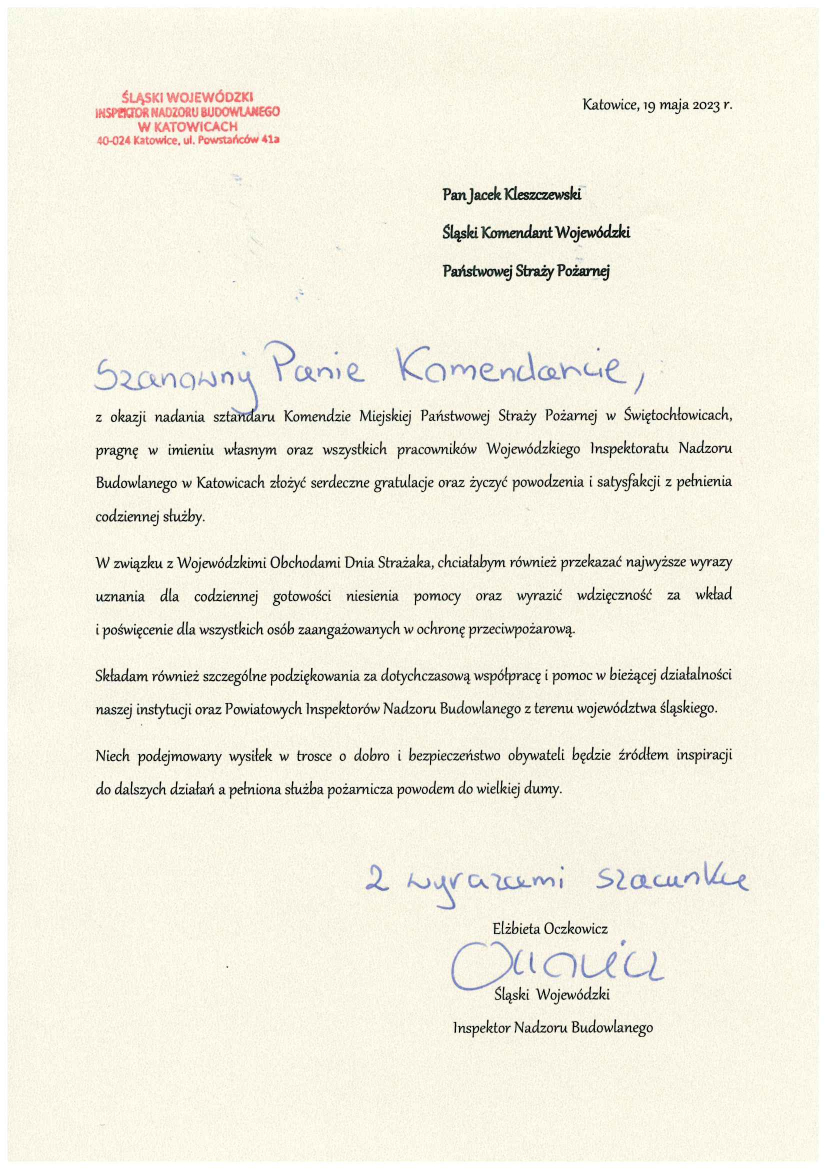 ŚLĄSKI WOJEWÓDZKI
INSPEKTOR NADZORU BUDOWLANEGO
W KATOWICACH
40-024 Katowice, ul. Powstańców 41a
Katowice, 19 maja 2023 r.
Pan Jacek Kleszczewski
Śląski Komendant Wojewódzki
Państwowej Straży Pożarnej
Szanowny Panie Komendancie,
z okazji nadania sztandaru Komendzie Miejskiej Państwowej Straży Pożarnej w Świętochłowicach,
pragnę w imieniu własnym oraz wszystkich pracowników Wojewódzkiego Inspektoratu Nadzoru
Budowlanego w Katowicach złożyć serdeczne gratulacje oraz życzyć powodzenia i satysfakcji z pełnienia
codziennej służby.
W związku z Wojewódzkimi Obchodami Dnia Strażaka, chciałabym również przekazać najwyższe wyrazy
uznania dla codziennej gotowości niesienia pomocy oraz wyrazić wdzięczność za wkład
i poświęcenie dla wszystkich osób zaangażowanych w ochronę przeciwpożarową.
Składam również szczególne podziękowania za dotychczasową współpracę i pomoc w bieżącej działalności
naszej instytucji oraz Powiatowych Inspektorów Nadzoru Budowlanego z terenu województwa śląskiego.
Niech podejmowany wysiłek w trosce o dobro i bezpieczeństwo obywateli będzie źródłem inspiracji
do dalszych działań a pełniona służba pożarnicza powodem do wielkiej dumy.
Z wyrazami szacunku
Elżbieta Oczkowicz
Śląski Wojewódzki
Inspektor Nadzoru Budowlanego